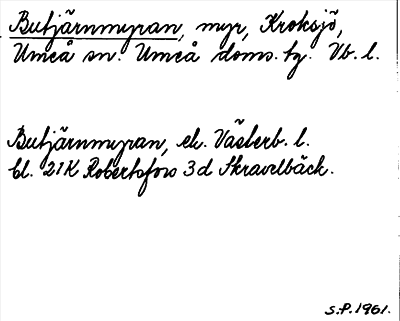 Butjärnmyran, myr, Kroksjö,
Umeå sn. Umeå doms. tg. Vb. l.
Butjärnmyran, ek. Västerb. l.
bl. 21K Robertsfors 3d Skravelbäck.
S.P. 1961.